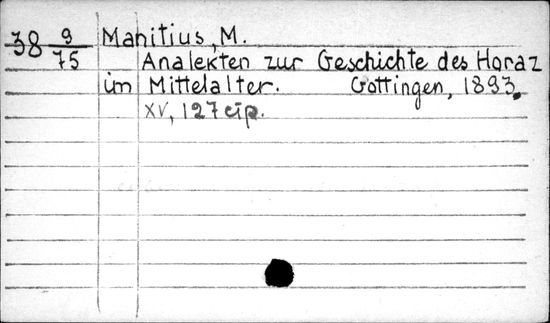 38 9/75 Manitius, M.
Analekten zur Geschichte des Horaz
im Mittelalter. Göttingen, 1893.
XV, 127 cтр.